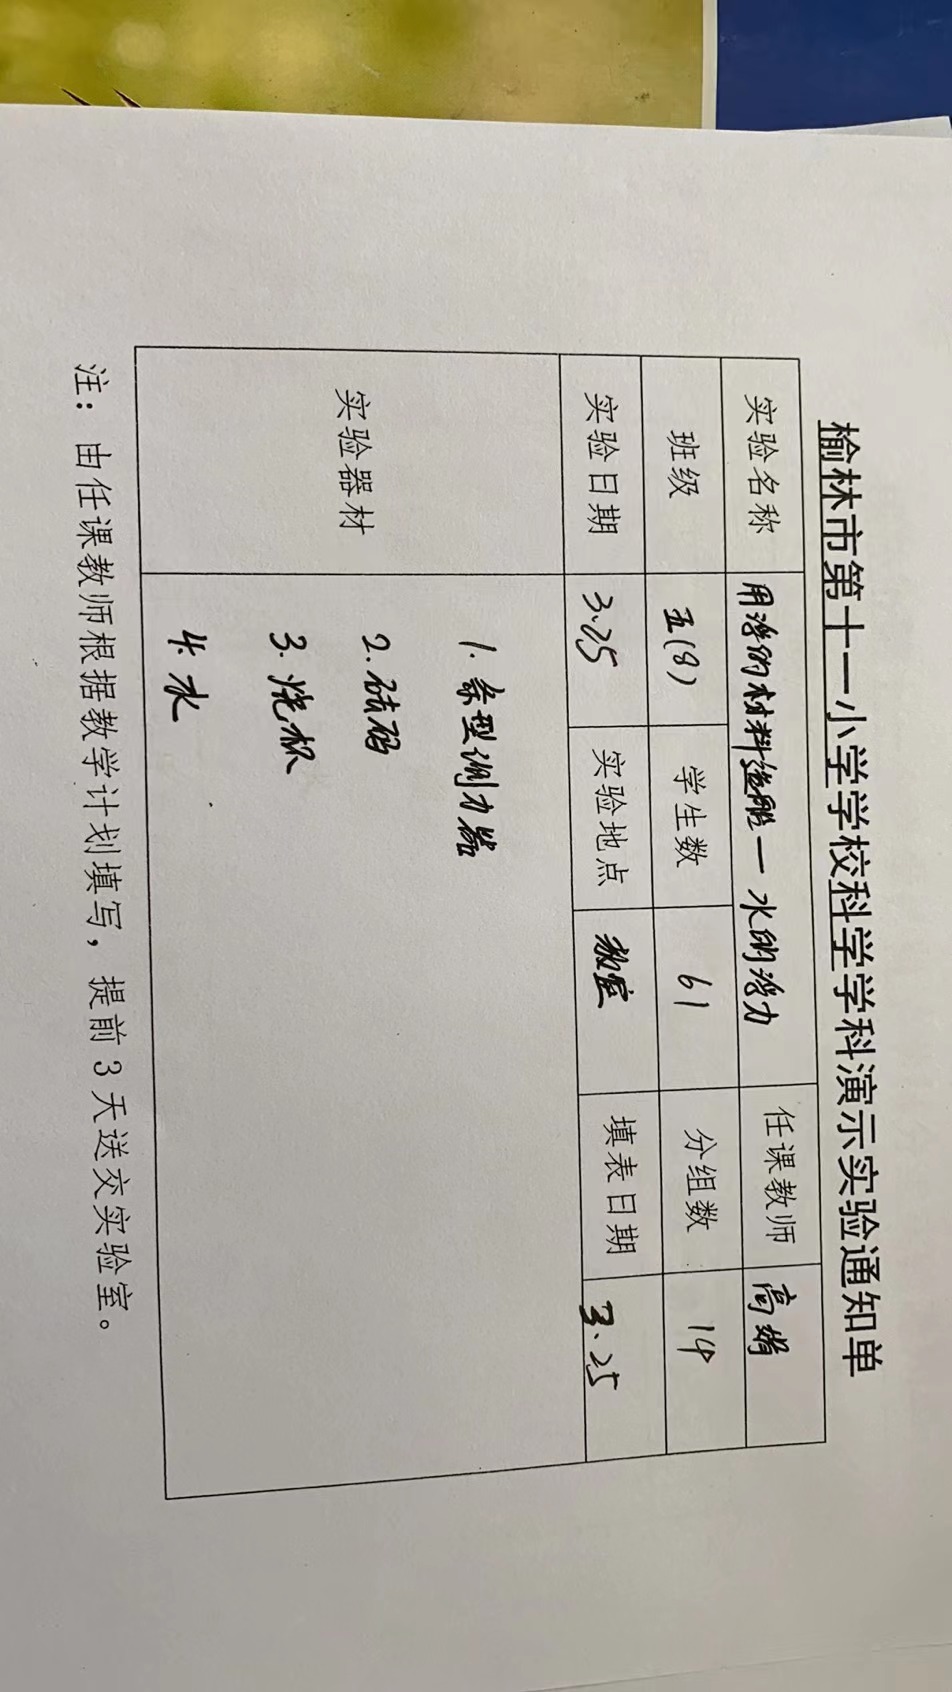 榆林市第十一小学学校科学学科演示实验通知单
实验名称 用浮的材料造船一水的浮力 任课教师 高娟
班级 五(8) 学生数 61 分组数 14
实验日期 3.25 实验地点 教室 填表日期 3.25
实验器材
1. 条型测力器
2. 砝码
3. 烧杯
4. 水
注：由任课教师根据教学计划填写，提前3天送交实验室。